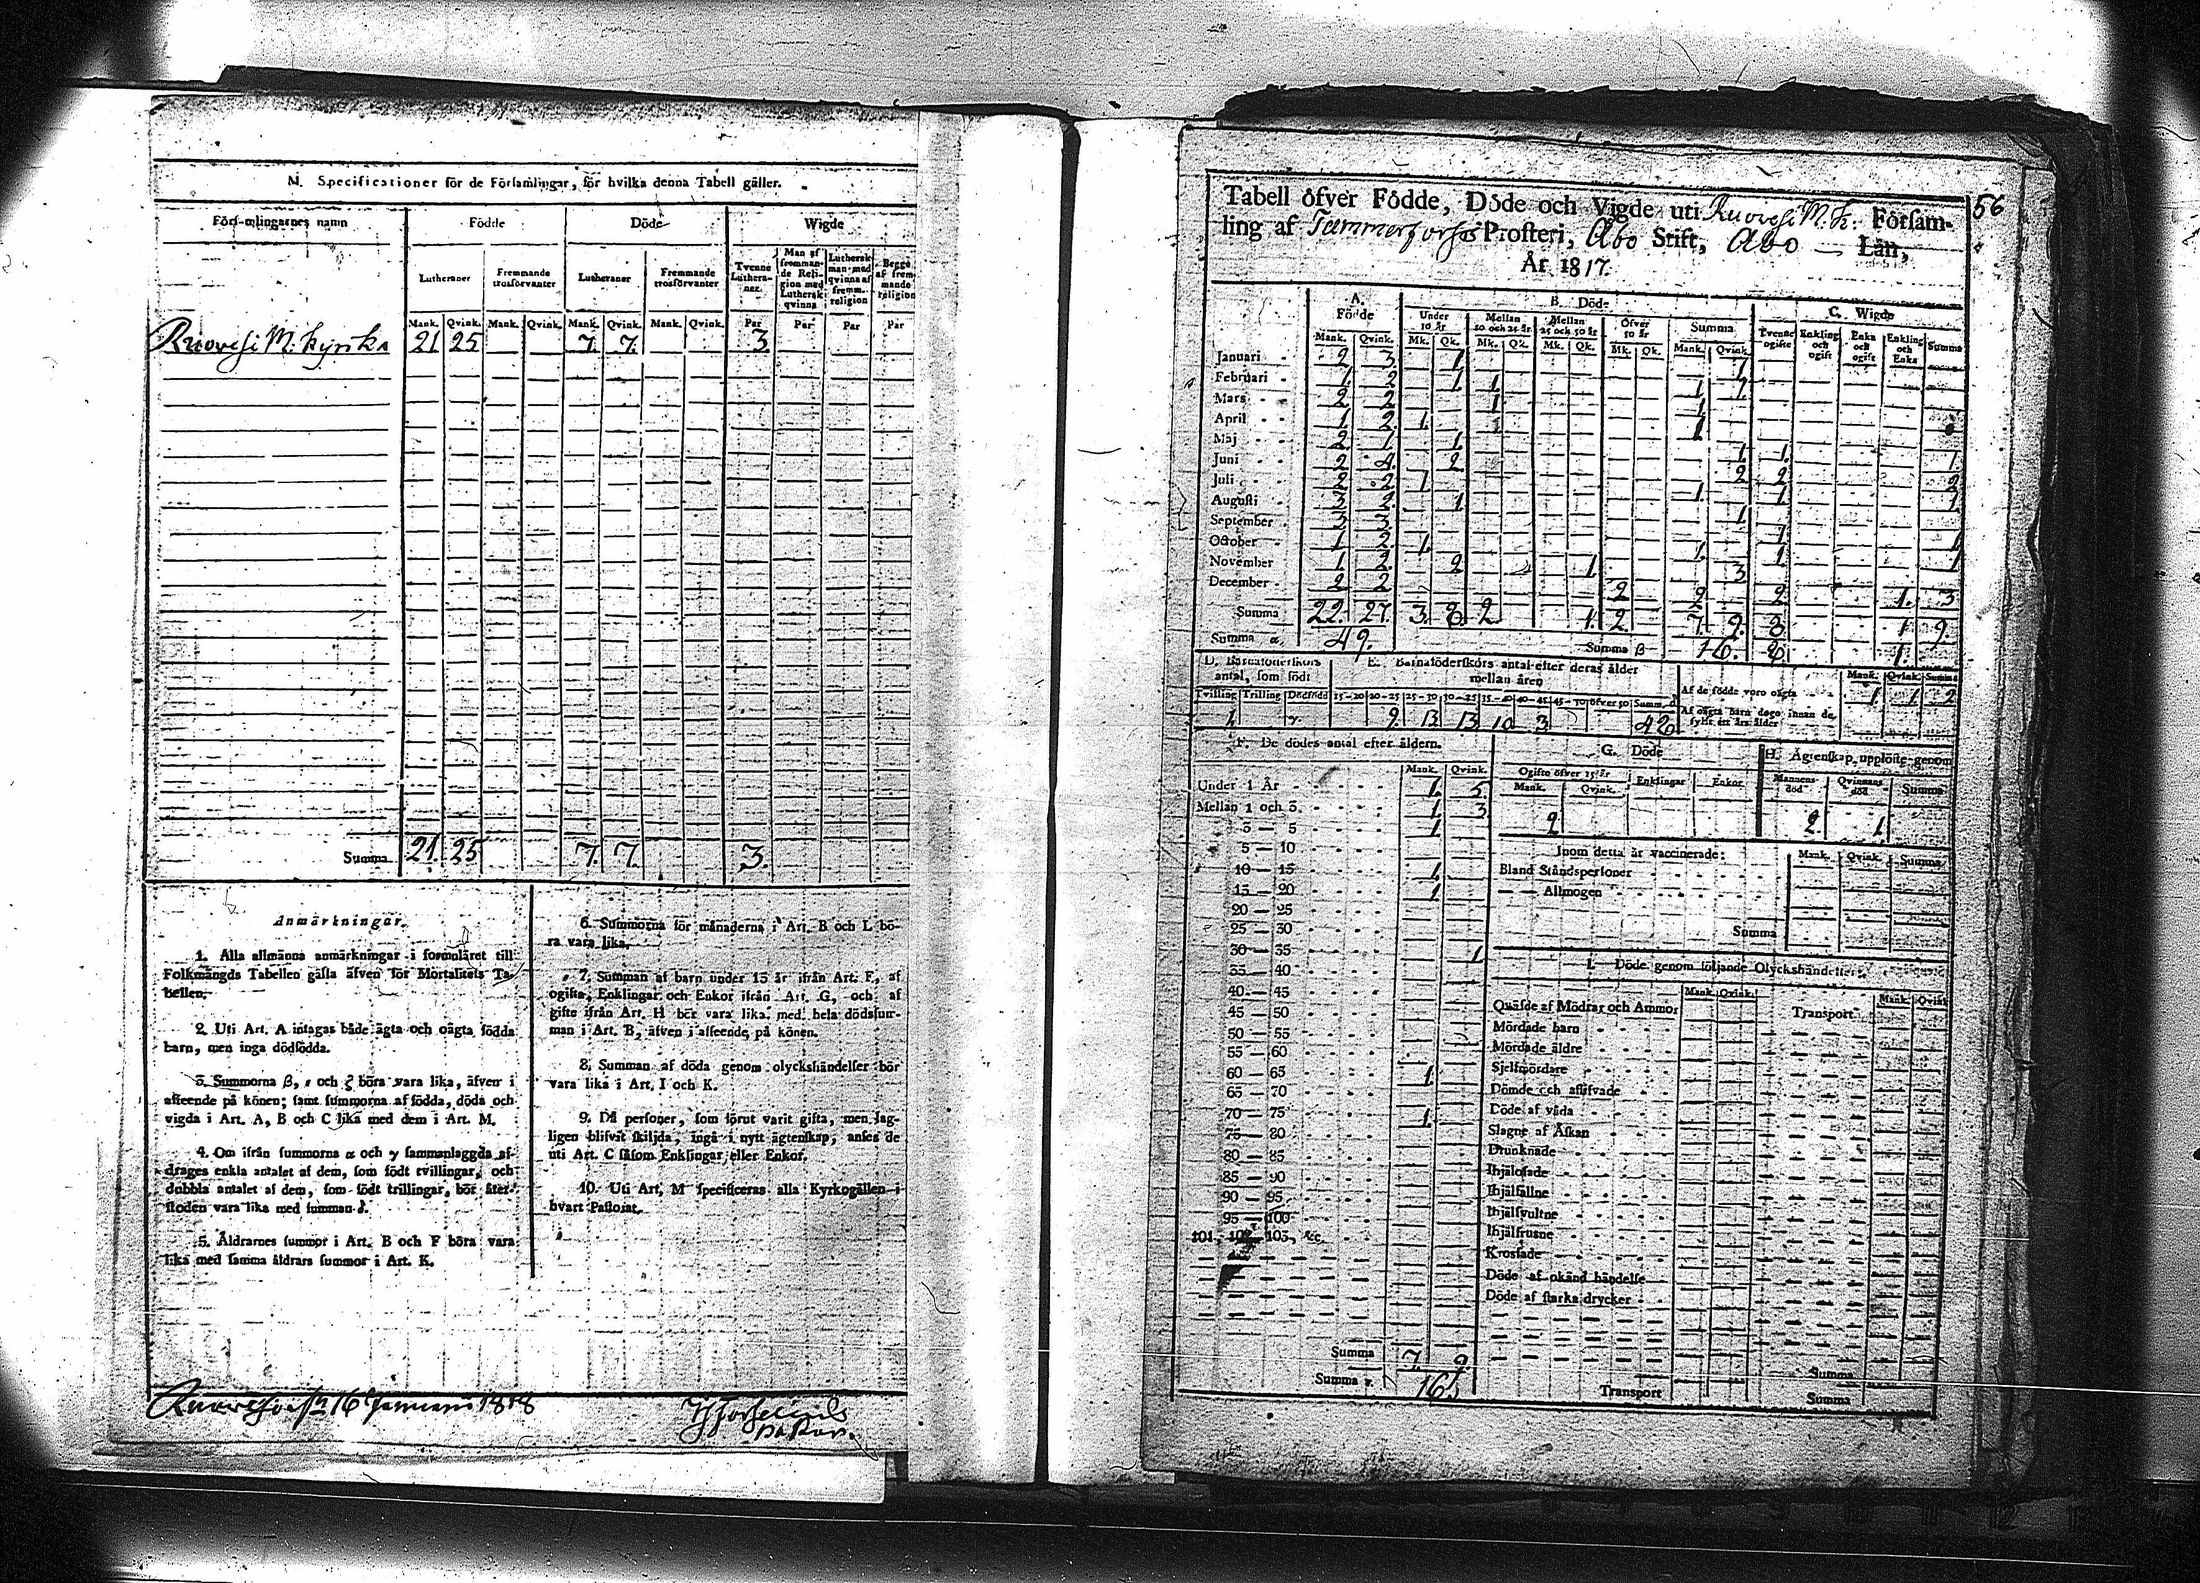 M. Specificationer för de Församlingar, för hvilka denna Tabell gäller.
Församlingarnes namn Födde Döde Wigde
Lutheraner Fremmande trosförvanter Lutheraner Fremmande trosförvanter Tvenne Lutheraner. Man af fremmande Religion med Luthersk qvinna Luthersk man med qvinna af fremm. religion Begge af fremmande religion
Mank. Qvink. Mank. Qvink. Mank. Qvink. Mank. Qvink. Par Par Par Par
Ruovesi M. kyrka 21 25 7. 7. 3.
Summa 21. 25 7. 7. 3.
Anmärkningar.
1. Alla allmänna anmärkningar i formuläret till
Folkmängds Tabellen gälla äfven för Mortalitets Ta-
bellen.
2. Uti Art. A intagas både ägta och oägta födda
barn, men inga dödfödda.
3. Summorna β, ε och ζ böra vara lika, äfven i
afseende på könen; samt summorna af födda, döda och
vigda i Art. A, B och C lika med dem i Art. M.
4. Om ifrån summorna α och γ sammanlaggda af-
drages enkla antalet af dem, som födt tvillingar, och
dubbla antalet af dem, som födt trillingar, bör åter-
stoden vara lika med summan δ.
5. Åldrarnes summor i Art. B och F böra vara
lika med samma åldrars summor i Art. K.
6. Summorna för månaderna i Art. B och L bö-
ra vara lika.
7. Summan af barn under 15 år ifrån Art. F, af
ogifta, Enklingar och Enkor ifrån Art. G, och af
gifte ifrån Art. H bör vara lika med hela dödssum-
man i Art. B, äfven i afseende på könen.
8. Summan af döda genom olyckshändelser bör
vara lika i Art. I och K.
9. Då personer, som förut varit gifta, men lag-
ligen blifvit skiljda, ingå i nytt ägtenskap, anses de
uti Art. C såsom Enklingar eller Enkor.
10. Uti Art. M specificeras alla Kyrkogällen i
hvart Pastorat.
16 Januarii 1818
56
Tabell öfver Födde, Döde och Vigde uti Ruovesi M. k. Församling
ling af Tammerfors Prosteri, Åbo Stift, Åbo Län,
År 1817.
A. Födde B. Döde C. Wigde
Under 10 år Mellan 10 och 25 år Mellan 25 och 50 år Öfver 50 år Summa Tvenne ogifte Enkling och ogift Enka och ogift Enkling och Enka Summa
Mank. Qvink. Mk. Qk. Mk. Qk. Mk. Qk. Mk. Qk. Mank. Qvink.
Januari 2 3. 1. 1.
Februari 1. 2 1 1. 1 1.
Mars 2. 2 1 1
April 1 2. 1. 1
Maj 2. 1. 1. 1. 1. 1.
Juni 2 4. 2 2 2 2
Juli 2 2 1 1 1 1
Augusti 3 2. 1. 1.
September 3 3. 1 1.
October 1 2. 1. 1. 1 1
November 1 2. 2 1. 3
December 2 2 2 2 2 1. 3
Summa 22. 27. 3. 8 2. 1. 2. 7. 9. 8 1 9.
Summa α 49. Summa β 16. 8 1.
D. Barnaföderskors antal, som födt
E. Barnaföderskors antal efter deras ålder mellan åren
Tvilling Trilling Dödfödd 15-20 20-25 25-30 30-35 35-40 40-45 45-50 öfver 50 Summa δ
1. γ. 9. 13. 13. 10 3. 48
Mank. Qvink. Summa
Af de födde voro oägta 1. 1. 2
Af oägta barn dogo innan de fyllt ett års ålder
F. De dödes antal efter åldern.
Mank. Qvink.
Under 1 År 1. 5
Mellan 1 och 3. 1. 3
3 — 5 1
5 — 10
10 — 15 1.
15 — 20 1
20 — 25
25 — 30
30 — 35 1
35 — 40
40 — 45
45 — 50
50 — 55
55 — 60
60 — 65 1.
65 — 70
70 — 75 1.
75 — 80
80 — 85
85 — 90
90 — 95
95 — 100
101, 102, 103, &c.
Summa 7. 9.
16
G. Döde
Ogifte öfver 15 år Enklingar Enkor
Mank. Qvink.
2
H. Ägtenskap upplöste genom
Mannens död Qvinnans död Summa
2 1.
Inom detta år vaccinerade: Mank. Qvink. Summa
Bland Ståndspersoner
— Allmogen
Summa
I. Döde genom följande Olyckshändelser.
Mank. Qvink. Mank. Qvink.
Quäfde af Mödrar och Ammor Transport
Mördade barn
Mördade äldre
Sjelfmördare
Dömde och aflifvade
Döde af våda
Slagne af Åskan
Drunknade
Ihjälosade
Ihjälfallne
Ihjälsvultne
Ihjälfrusne
Krossade
Döde af okänd händelse
Döde af starka drycker
Summa
Transport Summa